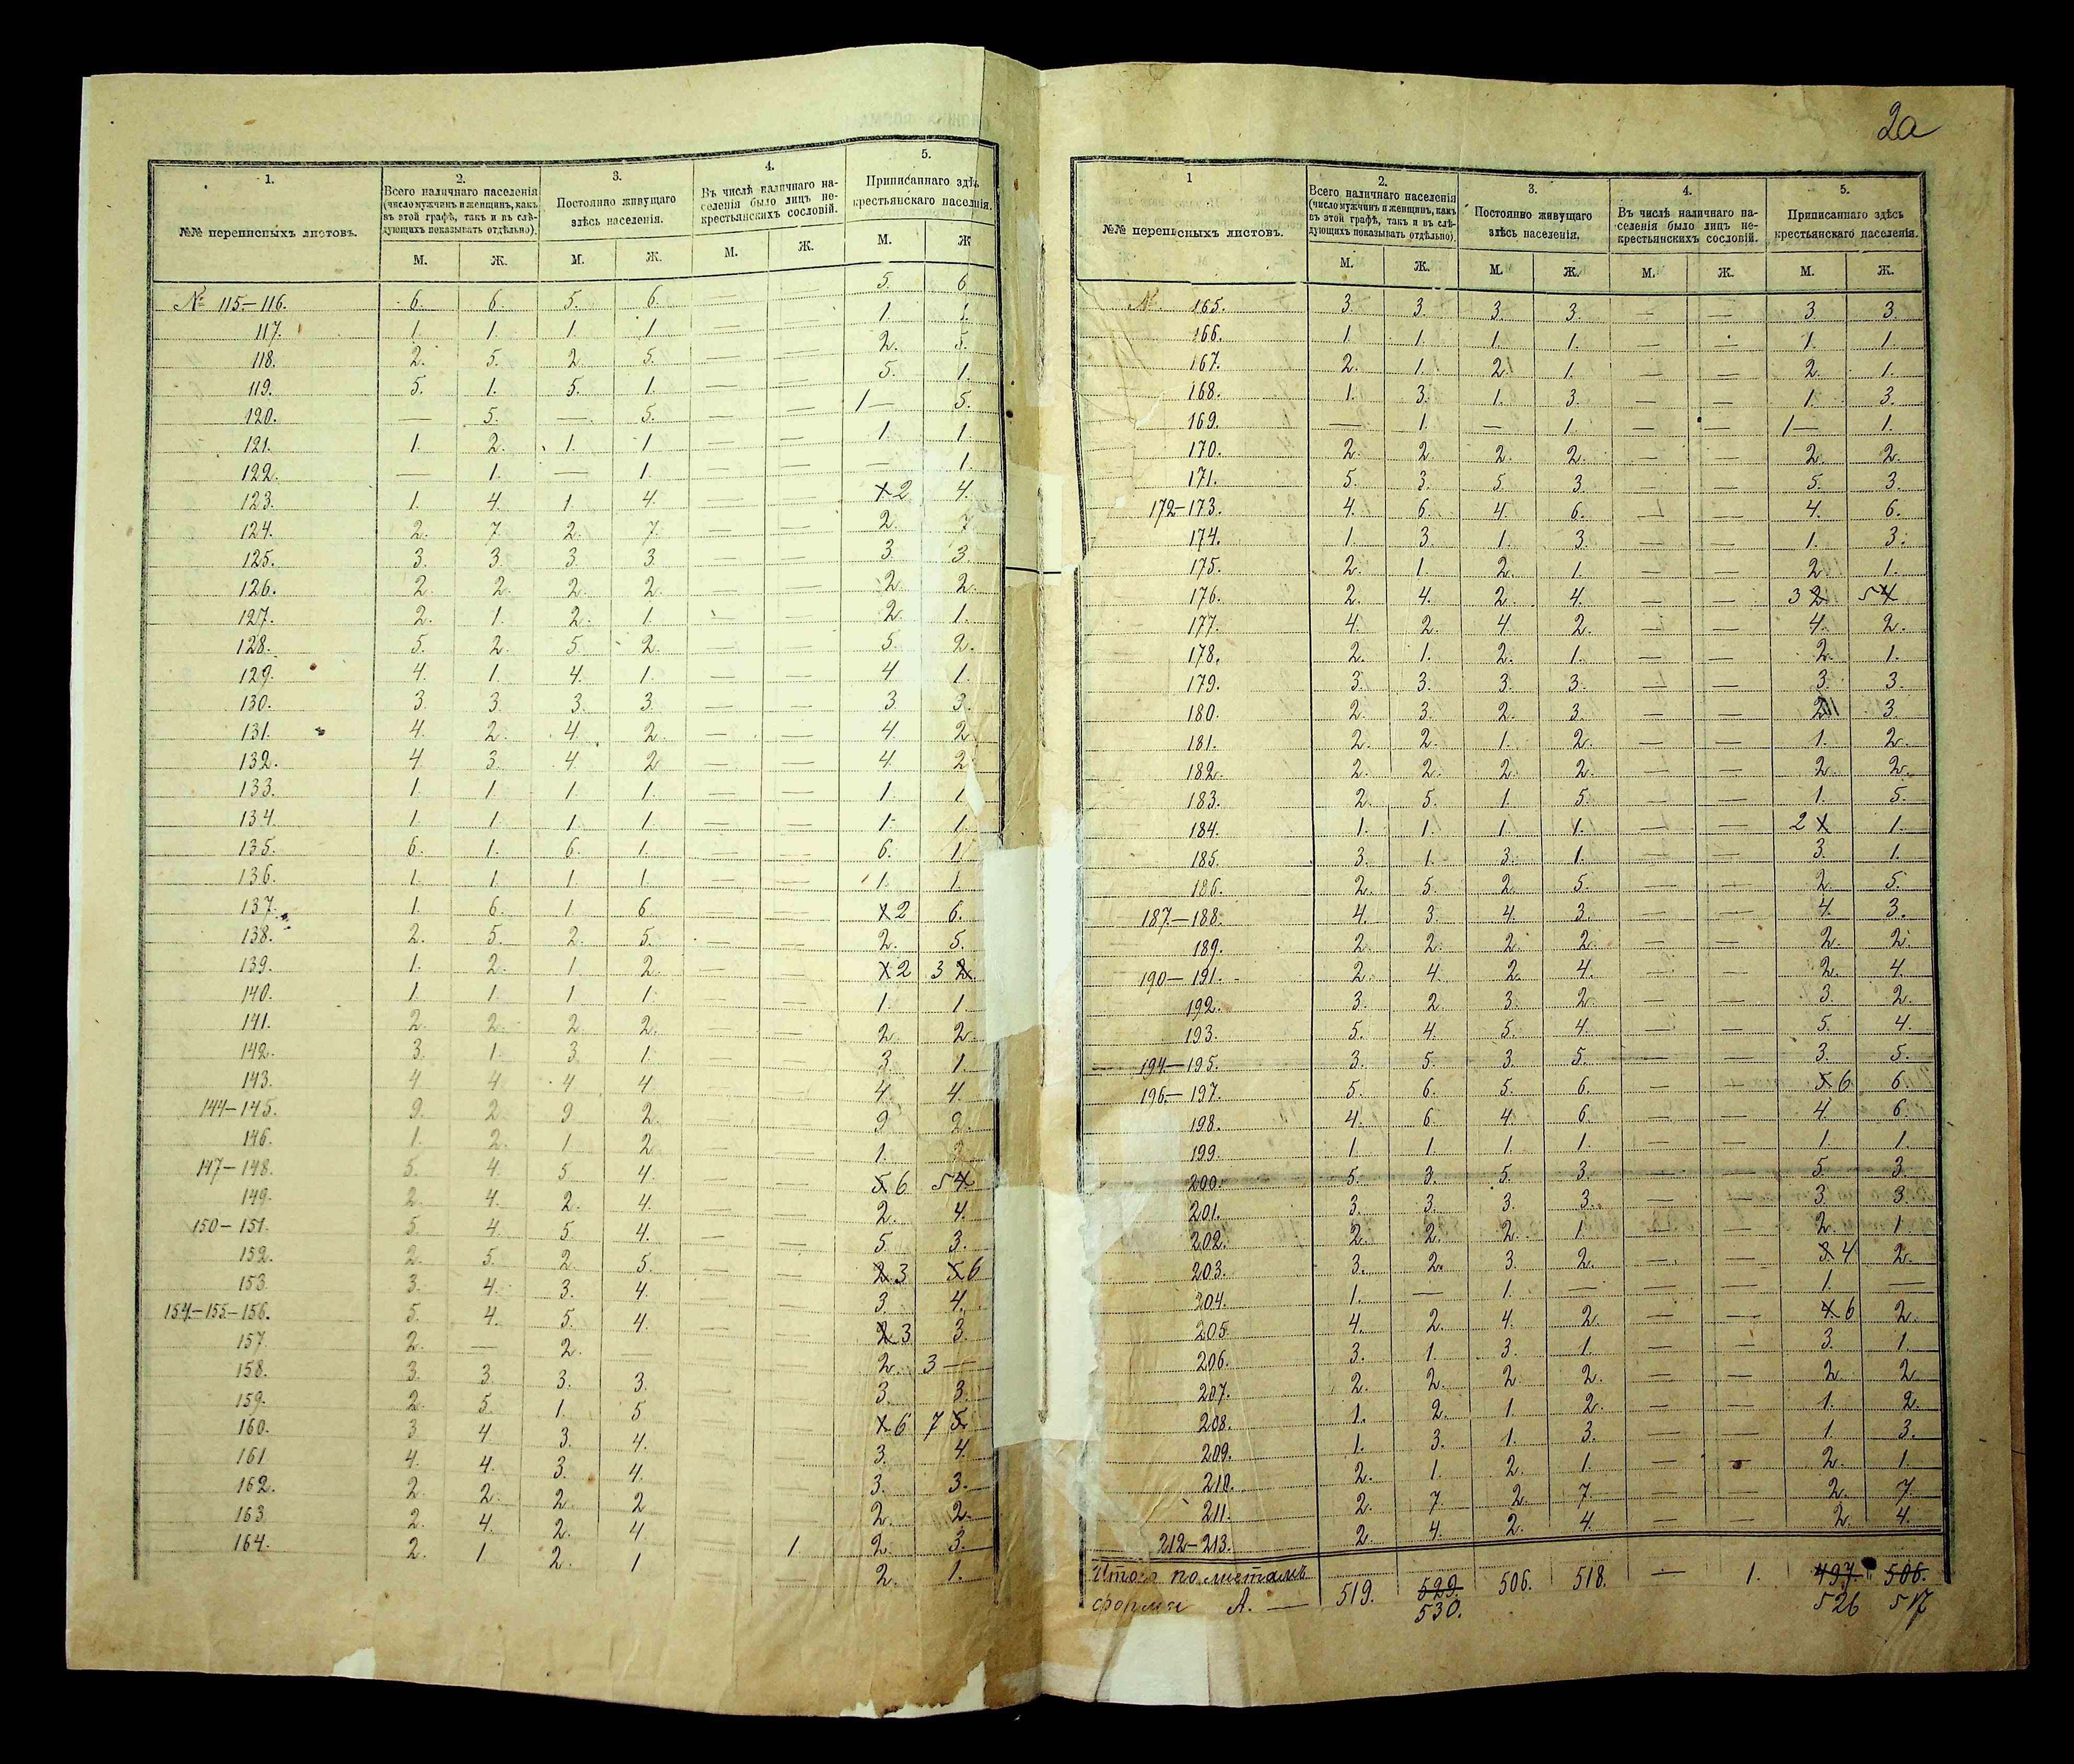 2а
1. 2. 3. 4. 5.
№№ переписныхъ листовъ.
Всего наличнаго населенія
(число мужчинъ и женщинъ, какъ
въ этой графѣ, такъ и въ слѣ-
дующихъ показывать отдѣльно).
Постоянно живущаго
здѣсь населенія.
Въ числѣ наличнаго на-
селенія было лицъ не-
крестьянскихъ сословій.
Приписаннаго здѣсь
крестьянскаго населенія.
М. Ж. М. Ж. М. Ж. М. Ж.
№ 115–116. 6. 6. 5. 6. — — 5. 6
117. 1. 1. 1. 1 — — 1 1.
118. 2. 5. 2. 5. — — 2. 5.
119. 5. 1. 5. 1. — — 5. 1.
120. — 5. — 5. — — 1 — 5.
121. 1. 2. 1. 1 — — 1. 1.
122. — 1. — 1. — — — 1.
123. 1. 4. 1. 4. — — 1 2 4.
124. 2. 7. 2. 7. — — 2. 7
125. 3. 3. 3. 3. — — 3. 3.
126. 2. 2. 2. 2. — — 2. 2.
127. 2. 1. 2. 1. — — 2. 1.
128. 5. 2. 5. 2. — — 5. 2.
129. 4. 1. 4. 1. — — 4 1.
130. 3. 3. 3. 3. — — 3. 3.
131. 4. 2. 4. 2. — — 4. 2
132. 4. 3. 4. 2 — — 4. 2
133. 1. 1. 1. 1. — — 1. 1.
134. 1. 1. 1. 1. — — 1. 1.
135. 6. 1. 6. 1. — — 6. 1.
136. 1. 1. 1. 1. — — 1. 1.
137. 1. 6. 1. 6. — — 1 2 6.
138. 2. 5. 2. 5. — — 2. 5.
139. 1. 2. 1. 2. — — 1 2 3 2.
140. 1. 1. 1. 1. — — 1. 1.
141. 2. 2. 2. 2. — — 2. 2.
142. 3. 1. 3. 1. — — 3. 1
143. 4 4 4 4 — — 4. 4.
144–145. 9. 2. 9. 2. — — 9. 2.
146. 1. 2. 1 2. — — 1.
147–148. 5. 4. 5 4. — — 5 6 5 4
149. 2. 4. 2. 4. — — 2. 4.
150–151. 5. 4. 5 4. — — 5 3.
152. 2. 5. 2. 5. — — 2 3 5 6
153. 3. 4. 3. 4. — — 3. 4.
154–155–156. 5. 4. 5. 4. — — 2 3 3.
157. 2. — 2. — — — 2. 3 —
158. 3. 3. 3. 3. — — 3. 3.
159. 2. 5. 1. 5. — — 1 6 7 5
160. 3 4. 3. 4. — — 3. 4.
161 4. 4. 3. 4. — — 3. 3.
162. 2. 2. 2. 2 — — 2. 2.
163 2. 4. 2. 4. — 1. 2. 3.
164. 2. 1 2. 1 — — 2. 1.
1 2. 3. 4. 5.
№№ переписныхъ листовъ.
Всего наличнаго населенія
(число мужчинъ и женщинъ, какъ
въ этой графѣ, такъ и въ слѣ-
дующихъ показывать отдѣльно).
Постоянно живущаго
здѣсь населенія.
Въ числѣ наличнаго на-
селенія было лицъ не-
крестьянскихъ сословій.
Приписаннаго здѣсь
крестьянскаго населенія.
М. Ж. М. Ж. М. Ж. М. Ж.
№ 165. 3. 3. 3. 3. — — 3 3.
166. 1. 1. 1. 1. — — 1. 1.
167. 2. 1. 2. 1. — — 2. 1.
168. 1. 3. 1. 3. — — 1. 3.
169. — 1. — 1. — — 1 — 1.
170. 2. 2. 2. 2. — — 2. 2.
171. 5. 3. 5. 3. — — 5. 3.
172–173. 4. 6. 4 6. — — 4. 6.
174. 1. 3. 1. 3. — — 1. 3.
175. 2. 1. 2. 1. — — 2. 1.
176. 2. 4. 2. 4. — — 3 2 5 4
177. 4. 2. 4. 2. — — 4. 2.
178. 2. 1. 2. 1. — — 2. 1.
179. 3. 3. 3. 3. — — 3. 3.
180. 2. 3. 2. 3. — — 3.
181. 2. 2. 1. 2. — — 1. 2.
182. 2. 2. 2. 2. — — 2. 2.
183. 2. 5. 1. 5. — — 1. 5.
184. 1. 1. 1. 1. — — 2 1 1.
185. 3. 1. 3. 1. — — 3. 1.
186. 2. 5. 2. 5. — — 2. 5.
187–188. 4. 3. 4. 3. — — 4. 3.
189. 2. 2. 2. 2. — — 2. 2.
190–191. 2. 4. 2. 4. — — 2. 4.
192. 3. 2. 3. 2. — — 3. 2.
193. 5. 4. 5. 4. — — 5. 4.
194–195. 3. 5. 3. 5. — — 3. 5.
196–197. 5. 6. 5. 6. — — 5 6 6.
198. 4. 6. 4. 6. — — 4 6.
199. 1. 1. 1. 1. — — 1. 1.
200. 5. 3. 5. 3. — — 5. 3.
201. 3. 3. 3. 3. — — 3. 3.
202. 2. 2. 2. 1. — — 2. 1
203. 3. 2. 3. 2. — — 3 4 2.
204. 1. — 1. — — — 1. —
205. 4. 2. 4. 2. — — 4 6 2.
206. 3. 1. 3. 1. — — 3. 1.
207. 2. 2. 2. 2. — — 2. 2
208. 1. 2. 1. 2. — — 1. 2.
209. 1. 3. 1. 3. — — 1. 3.
210. 2. 1. 2. 1 — — 2. 1.
211. 2. 7. 2. 7. — — 2. 7
212–213. 2. 4. 2. 4. — — 2. 4.
Итого по листамъ
формы А. — 519. 529. 506. 518. — 1. 497. 506.
530. 526 517